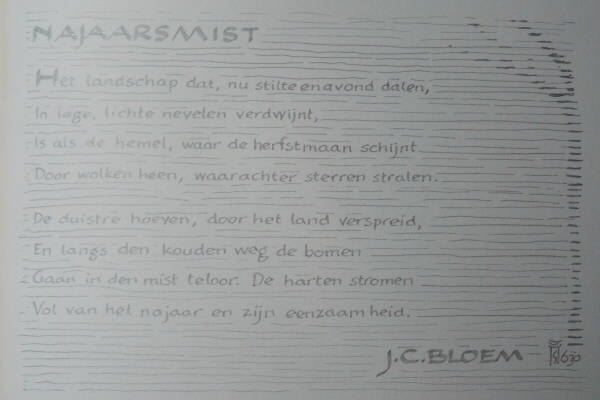 NAJAARSMIST
Het landschap dat, nu stilte en avond dalen,
In lage, lichte nevelen verdwijnt,
Is als de hemel, waar de herfstmaan schijnt
Door wolken heen, waarachter sterren stralen.
De duistre hoeven, door het land verspreid,
En langs den kouden weg de bomen
Gaan in den mist teloor. De harten stromen
Vol van het najaar en zijn eenzaamheid.
J.C. BLOEM
630